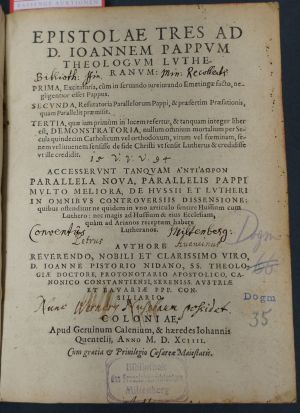 EPISTOLAE TRES AD
D. IOANNEM PAPPVM
THEOLOGVM LVTHE-
RANVM:
Biblioth: Min. Recollect
PRIMA, Excitatoria, cùm in
negligentior esset Pappus.
SECVNDA, Refutatoria Parallelorum Pappi, & præsertim Præfationis,
quam Parallelis præmisit.
TERTIA, quæ iam primùm in lucem refertur, & tanquam integer liber
est, DEMONSTRATORIA, nullum omnium mortalium per Se-
cula quindecim Catholicum vel orthodoxum, virum vel feminam, se-
nem vel iuuenem sensisse de fide Christi vt sensit Lutherus & credidisse
vt ille credidit.
ACCESSERVNT TANQVAM ἀντίδωρον
PARALLELA NOVA, PARALLELIS PAPPI
MVLTO MELIORA, DE HVSSII ET LVTHERI
IN OMNIBVS CONTROVERSIIS DISSENSIONE:
quibus ostenditur ne quidem in vno articulo sensire Hussium cum
Luthero: nec magis ad Hussium & eius Ecclesiam,
quàm ad Arianos receptum habere
Lutheranos.
Conventus Miltenberg:
AVTHORE
REVERENDO, NOBILI ET CLARISSIMO VIRO,
D. IOANNE PISTORIO NIDANO, SS. THEOLO-
GIÆ DOCTORE, PROTONOTARIO APOSTOLICO, CA-
NONICO CONSTANTIENSI, SERENISS. AVSTRIÆ
ET BAVARIÆ PPP. CON-
SILIARIO.
Nunc possidet.
Dogm
35
COLONIAE,
Apud Geruinum Calenium, & hæredes Iohannis
Quentelij, Anno M. D. XCIIII.
Cum gratia & Priuilegio Cæsareæ Maiestatis.
Bibliothek
Miltenberg